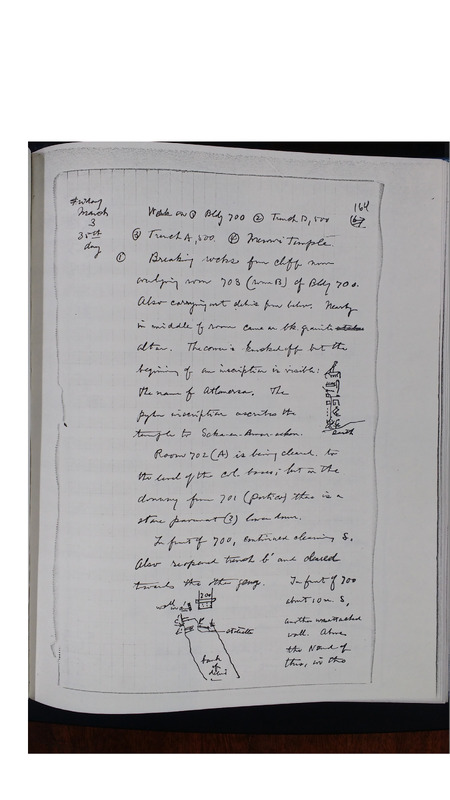 March
3
35th
day
164
Work on ① Bldg 700 ② Trench B, 500
③ Trench A, 500 ④ Temple.
① Breaking rocks from cliff now
room 703 (room B) of Bldg 700.
Also carrying out debris from below. Nearly
in middle of room came on bk. granite
altar. The corner is knocked off but the
beginning of an inscription is visible:
the name of Atlanersa. The
pylon inscription ascribes the
temple to
South
Room 702 (A) is being cleared to
the level of the col. bases; but in the
doorway from 701 (portico) there is a
stone pavement (3) lower down.
In front of 700, continued cleaning S.
Also reopened trench b' and cleared
towards the other gang. In front of 700
about 10 m. S,
another unattached
wall. Above
the N end of
this, is the
wall
700
bank
of
debris